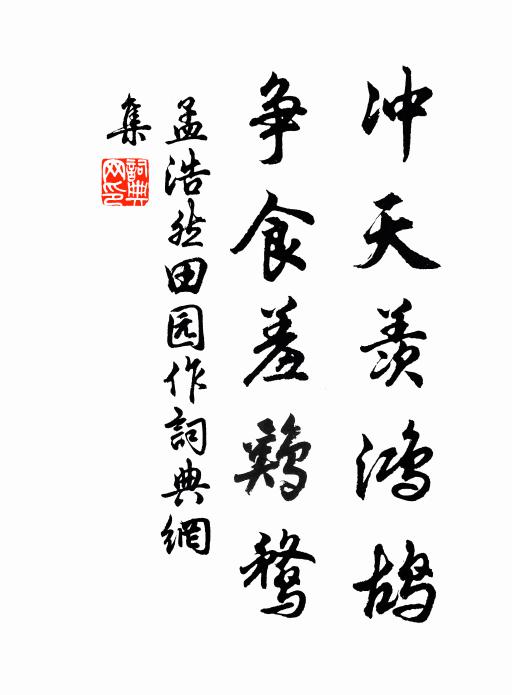 冲天羡鸿鹄
争食羞鸡鹜
孟浩然田园作詞典網
集
詞典網印